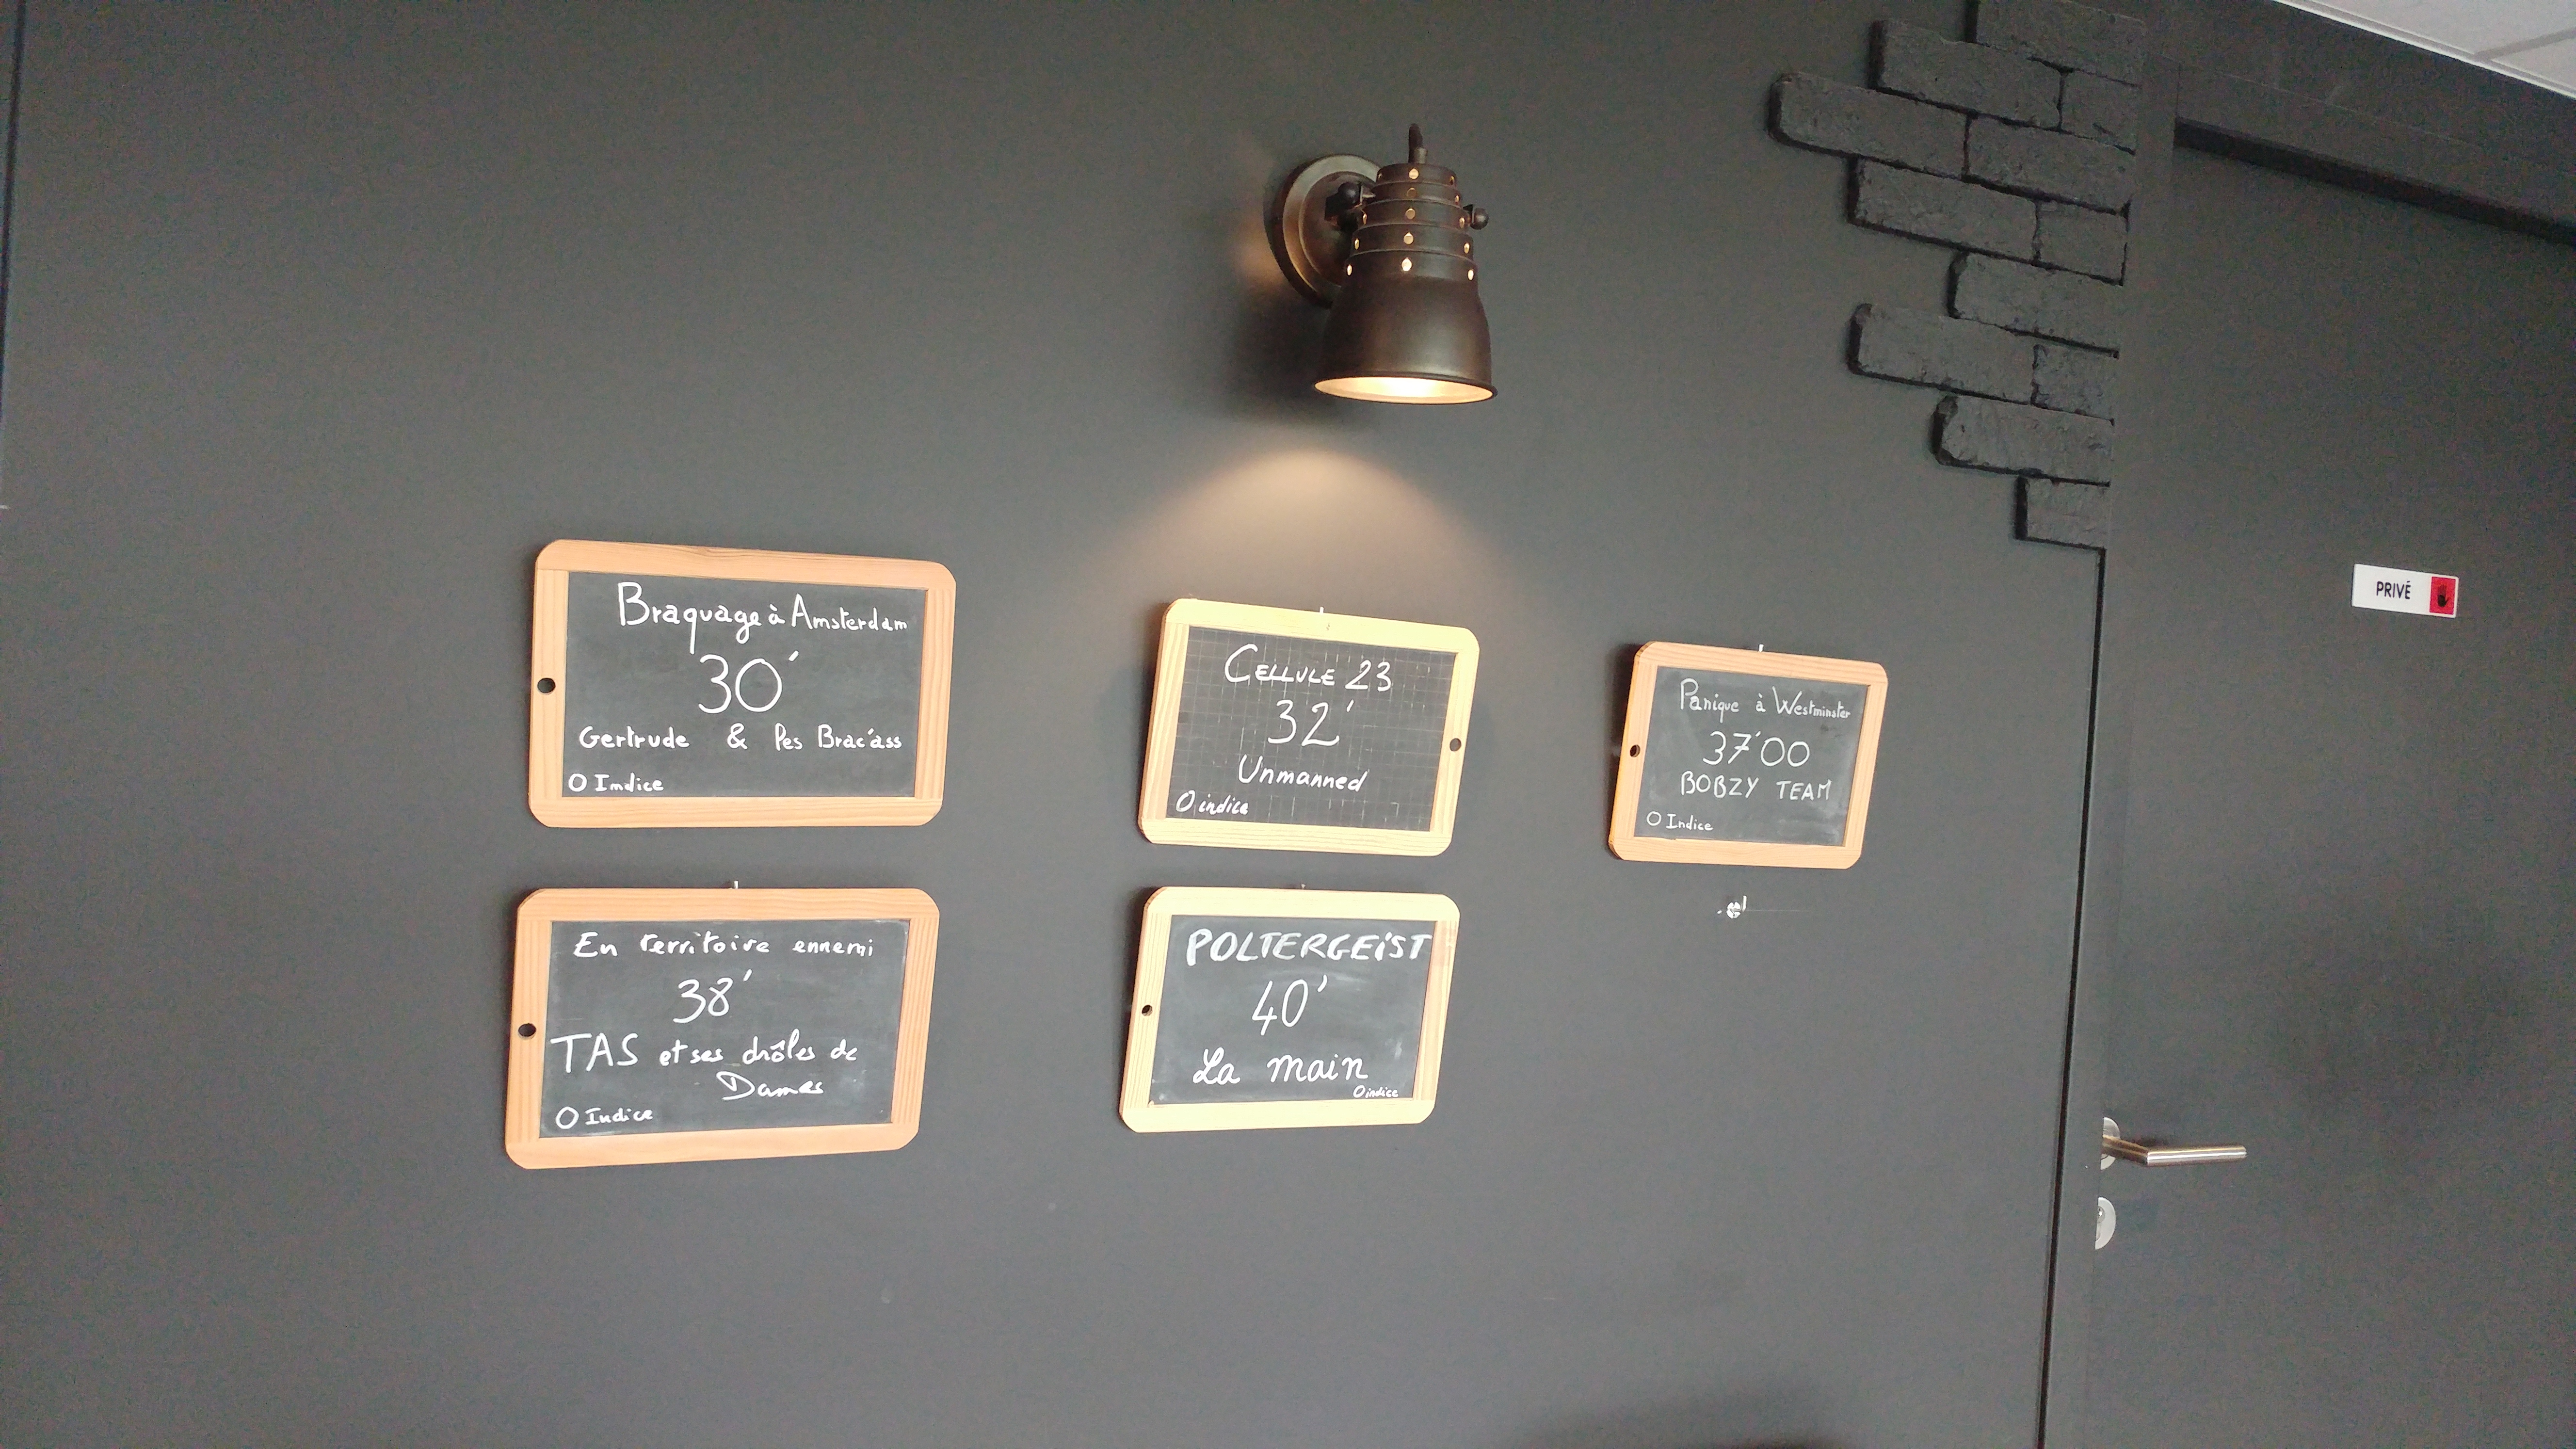 Braquage à Amsterdam
30'
Gertrude & les Brac'ass
0 Indice
CELLULE 23
32'
Unmanned
0 indice
Panique à Westminster
37'00
BOBZY TEAM
0 Indice
En territoire ennemi
38'
TAS et ses drôles de
Dames
0 Indice
POLTERGEIST
40'
La main
0 indice
PRIVÉ